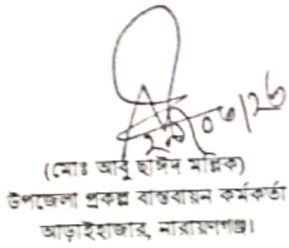 (মোঃ আবু ছাঈদ মল্লিক)
উপজেলা প্রকল্প বাস্তবায়ন কর্মকর্তা
আড়াইহাজার, নারায়নগঞ্জ।